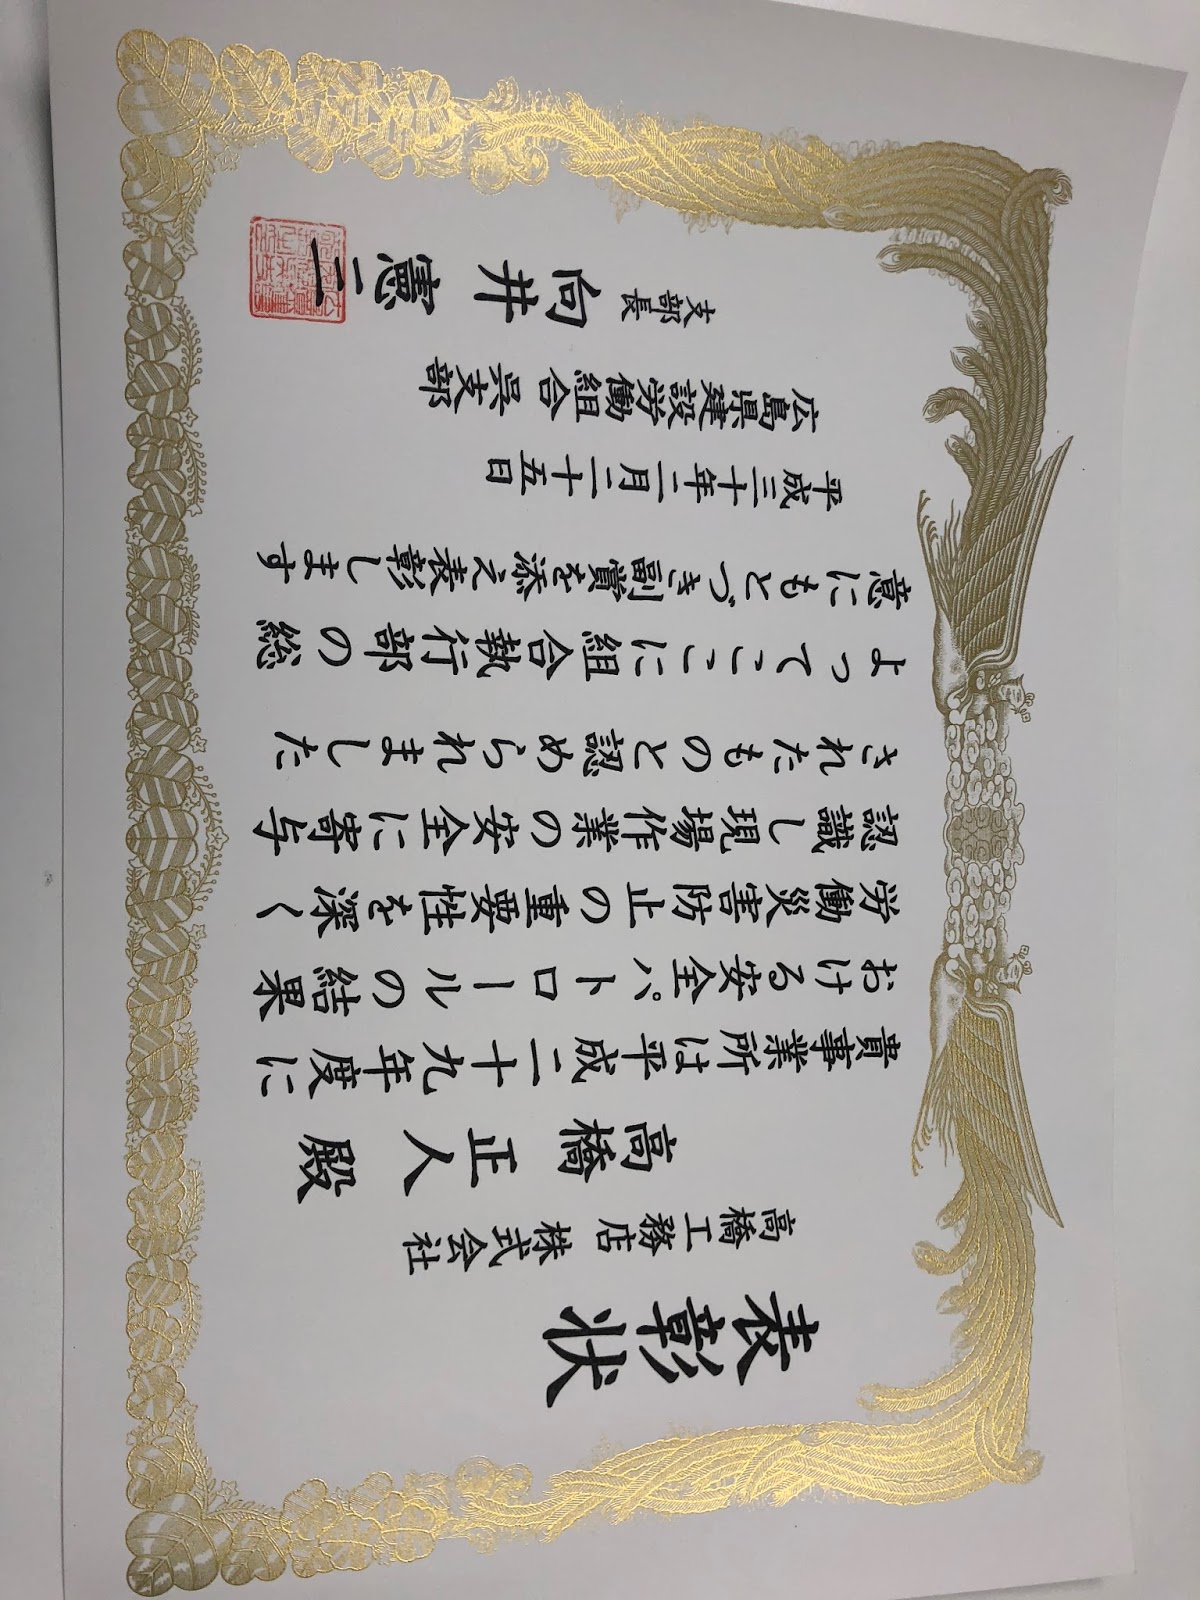 表彰状
高橋工務店 株式会社
高橋 正人 殿
貴事業所は平成二十九年度に
おける安全パトロールの結果
労働災害防止の重要性を深く
認識し現場作業の安全に寄与
されたものと認められました
よってここに組合執行部の総
意にもとづき副賞を添え表彰します
平成三十年二月二十五日
広島県建設労働組合呉支部
支部長 向井 憲二